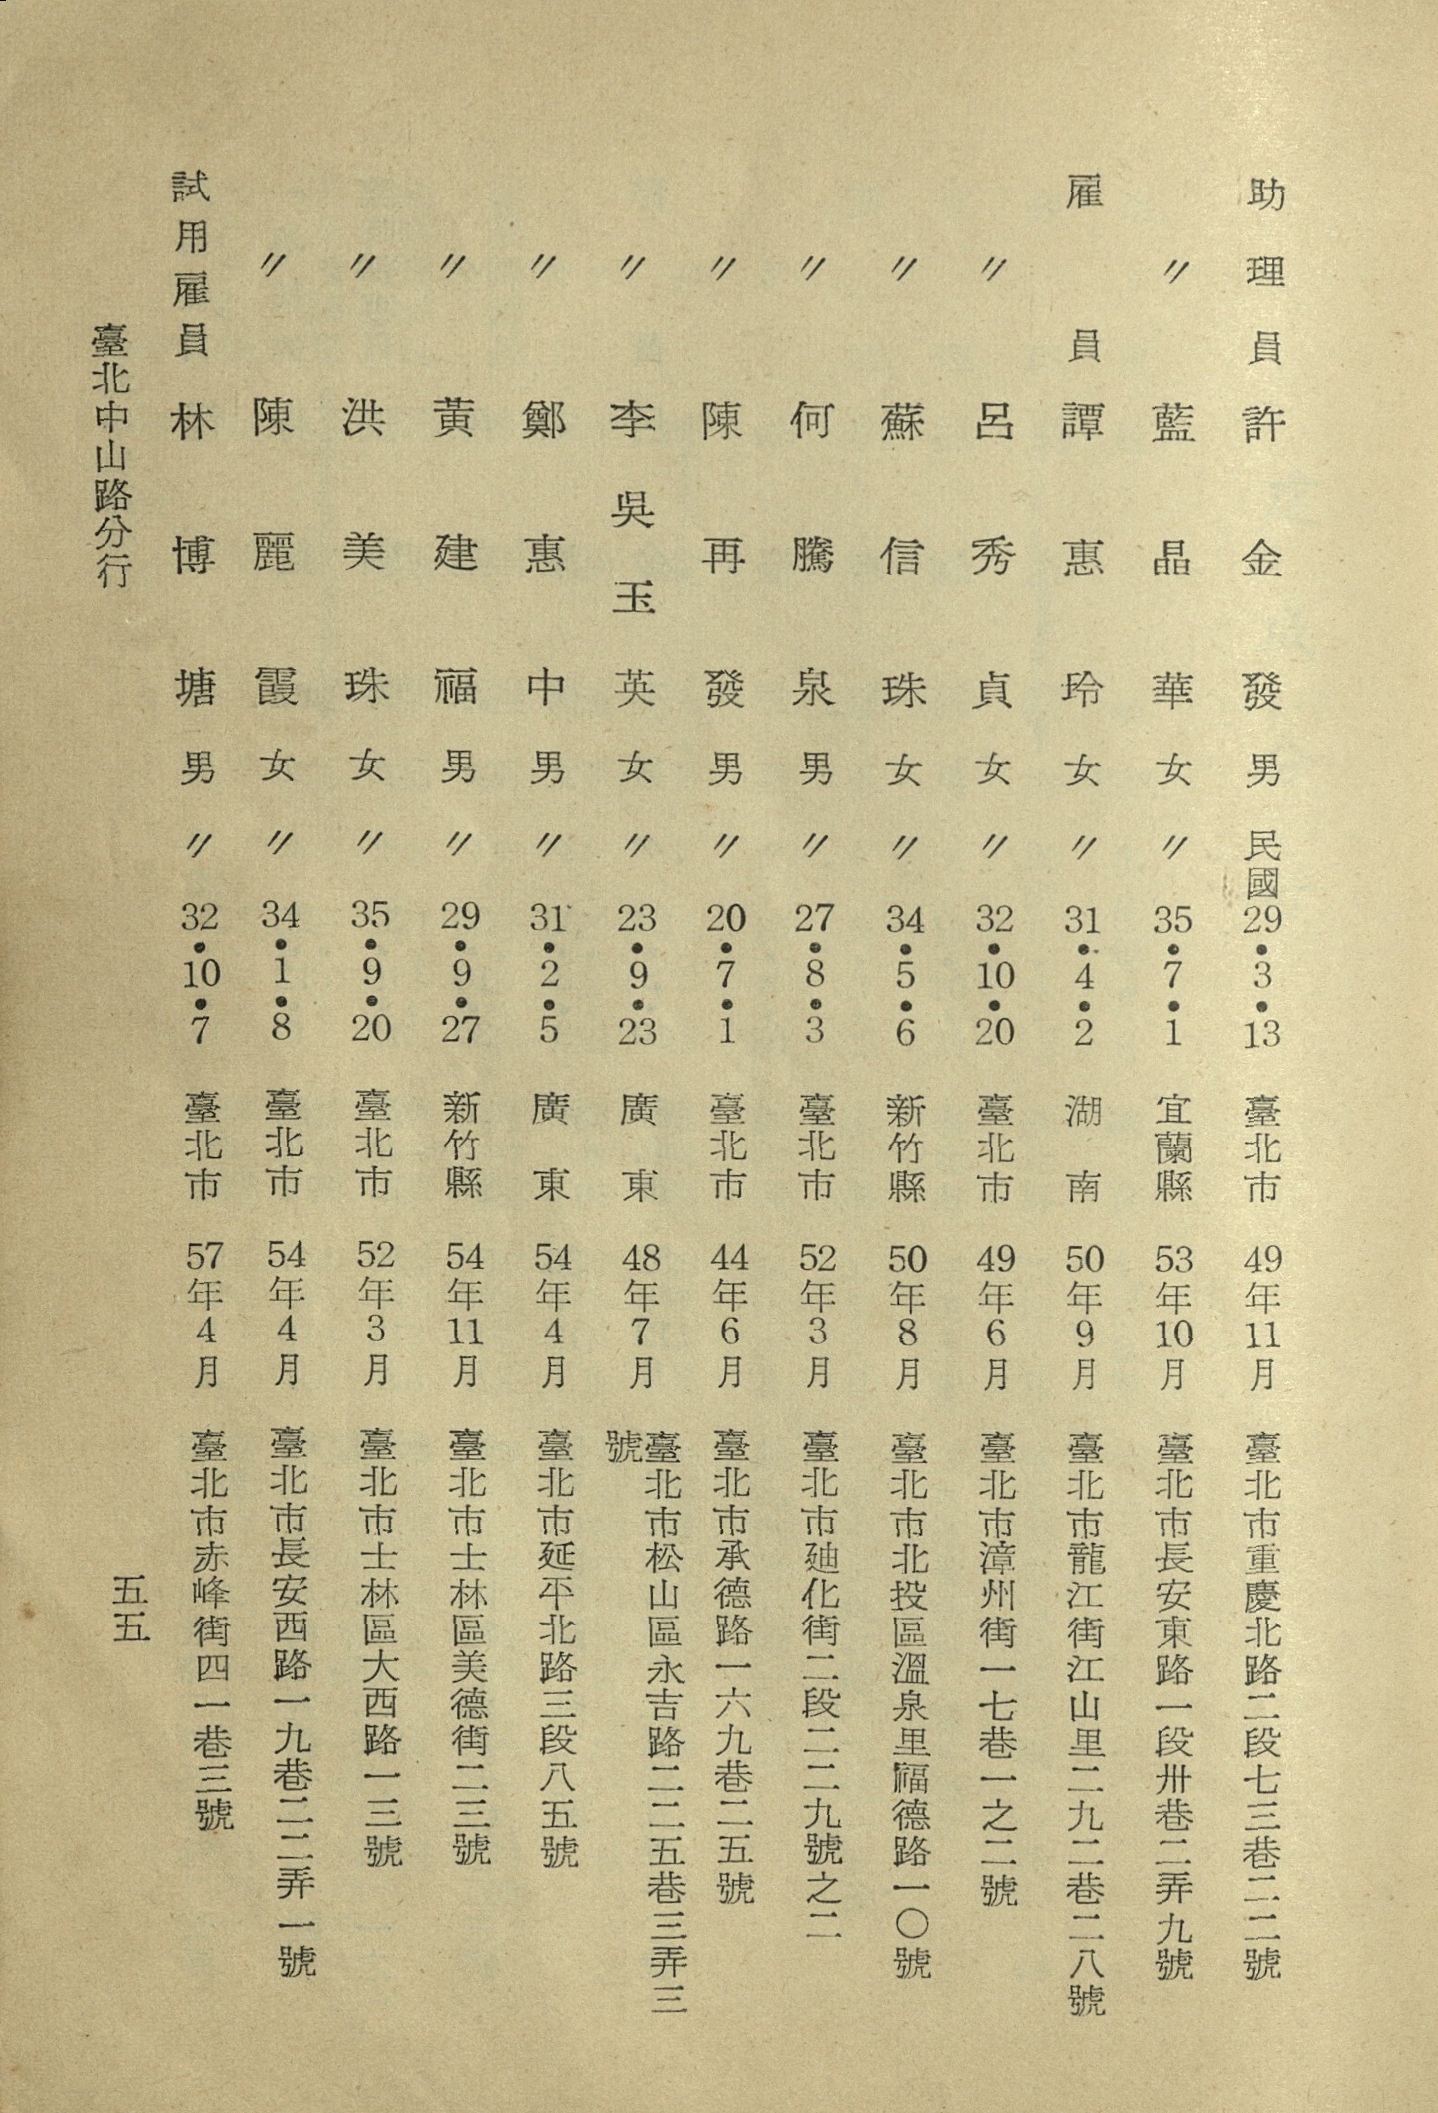 助理員 許金發 男 民國29•3•13 臺北市 49年11月 臺北市重慶北路二段七三巷二二號
〃 藍晶華 女 〃35•7•1 宜蘭縣 53年10月 臺北市長安東路一段卅巷二弄九號
雇員 譚惠玲 女 〃31•4•2 湖南 50年9月 臺北市龍江街江山里二九二巷二八號
〃 呂秀貞 女 〃32•10•20 臺北市 49年6月 臺北市漳州街一七巷一之二號
〃 蘇信珠 女 〃34•5•6 新竹縣 50年8月 臺北市北投區溫泉里福德路一〇號
〃 何騰泉 男 〃27•8•3 臺北市 52年3月 臺北市廸化街二段二二九號之二
〃 陳再發 男 〃20•7•1 臺北市 44年6月 臺北市承德路一六九巷二五號
〃 李吳玉英 女 〃23•9•23 廣東 48年7月 臺北市松山區永吉路二二五巷三弄三
號
〃 鄭惠中 男 〃31•2•5 廣東 54年4月 臺北市延平北路三段八五號
〃 黃建福 男 〃29•9•27 新竹縣 54年11月 臺北市士林區美德街二三號
〃 洪美珠 女 〃35•9•20 臺北市 52年3月 臺北市士林區大西路一三號
〃 陳麗霞 女 〃34•1•8 臺北市 54年4月 臺北市長安西路一九巷二二弄一號
試用雇員 林博塘 男 〃32•10•7 臺北市 57年4月 臺北市赤峰街四一巷三號
臺北中山路分行
五五